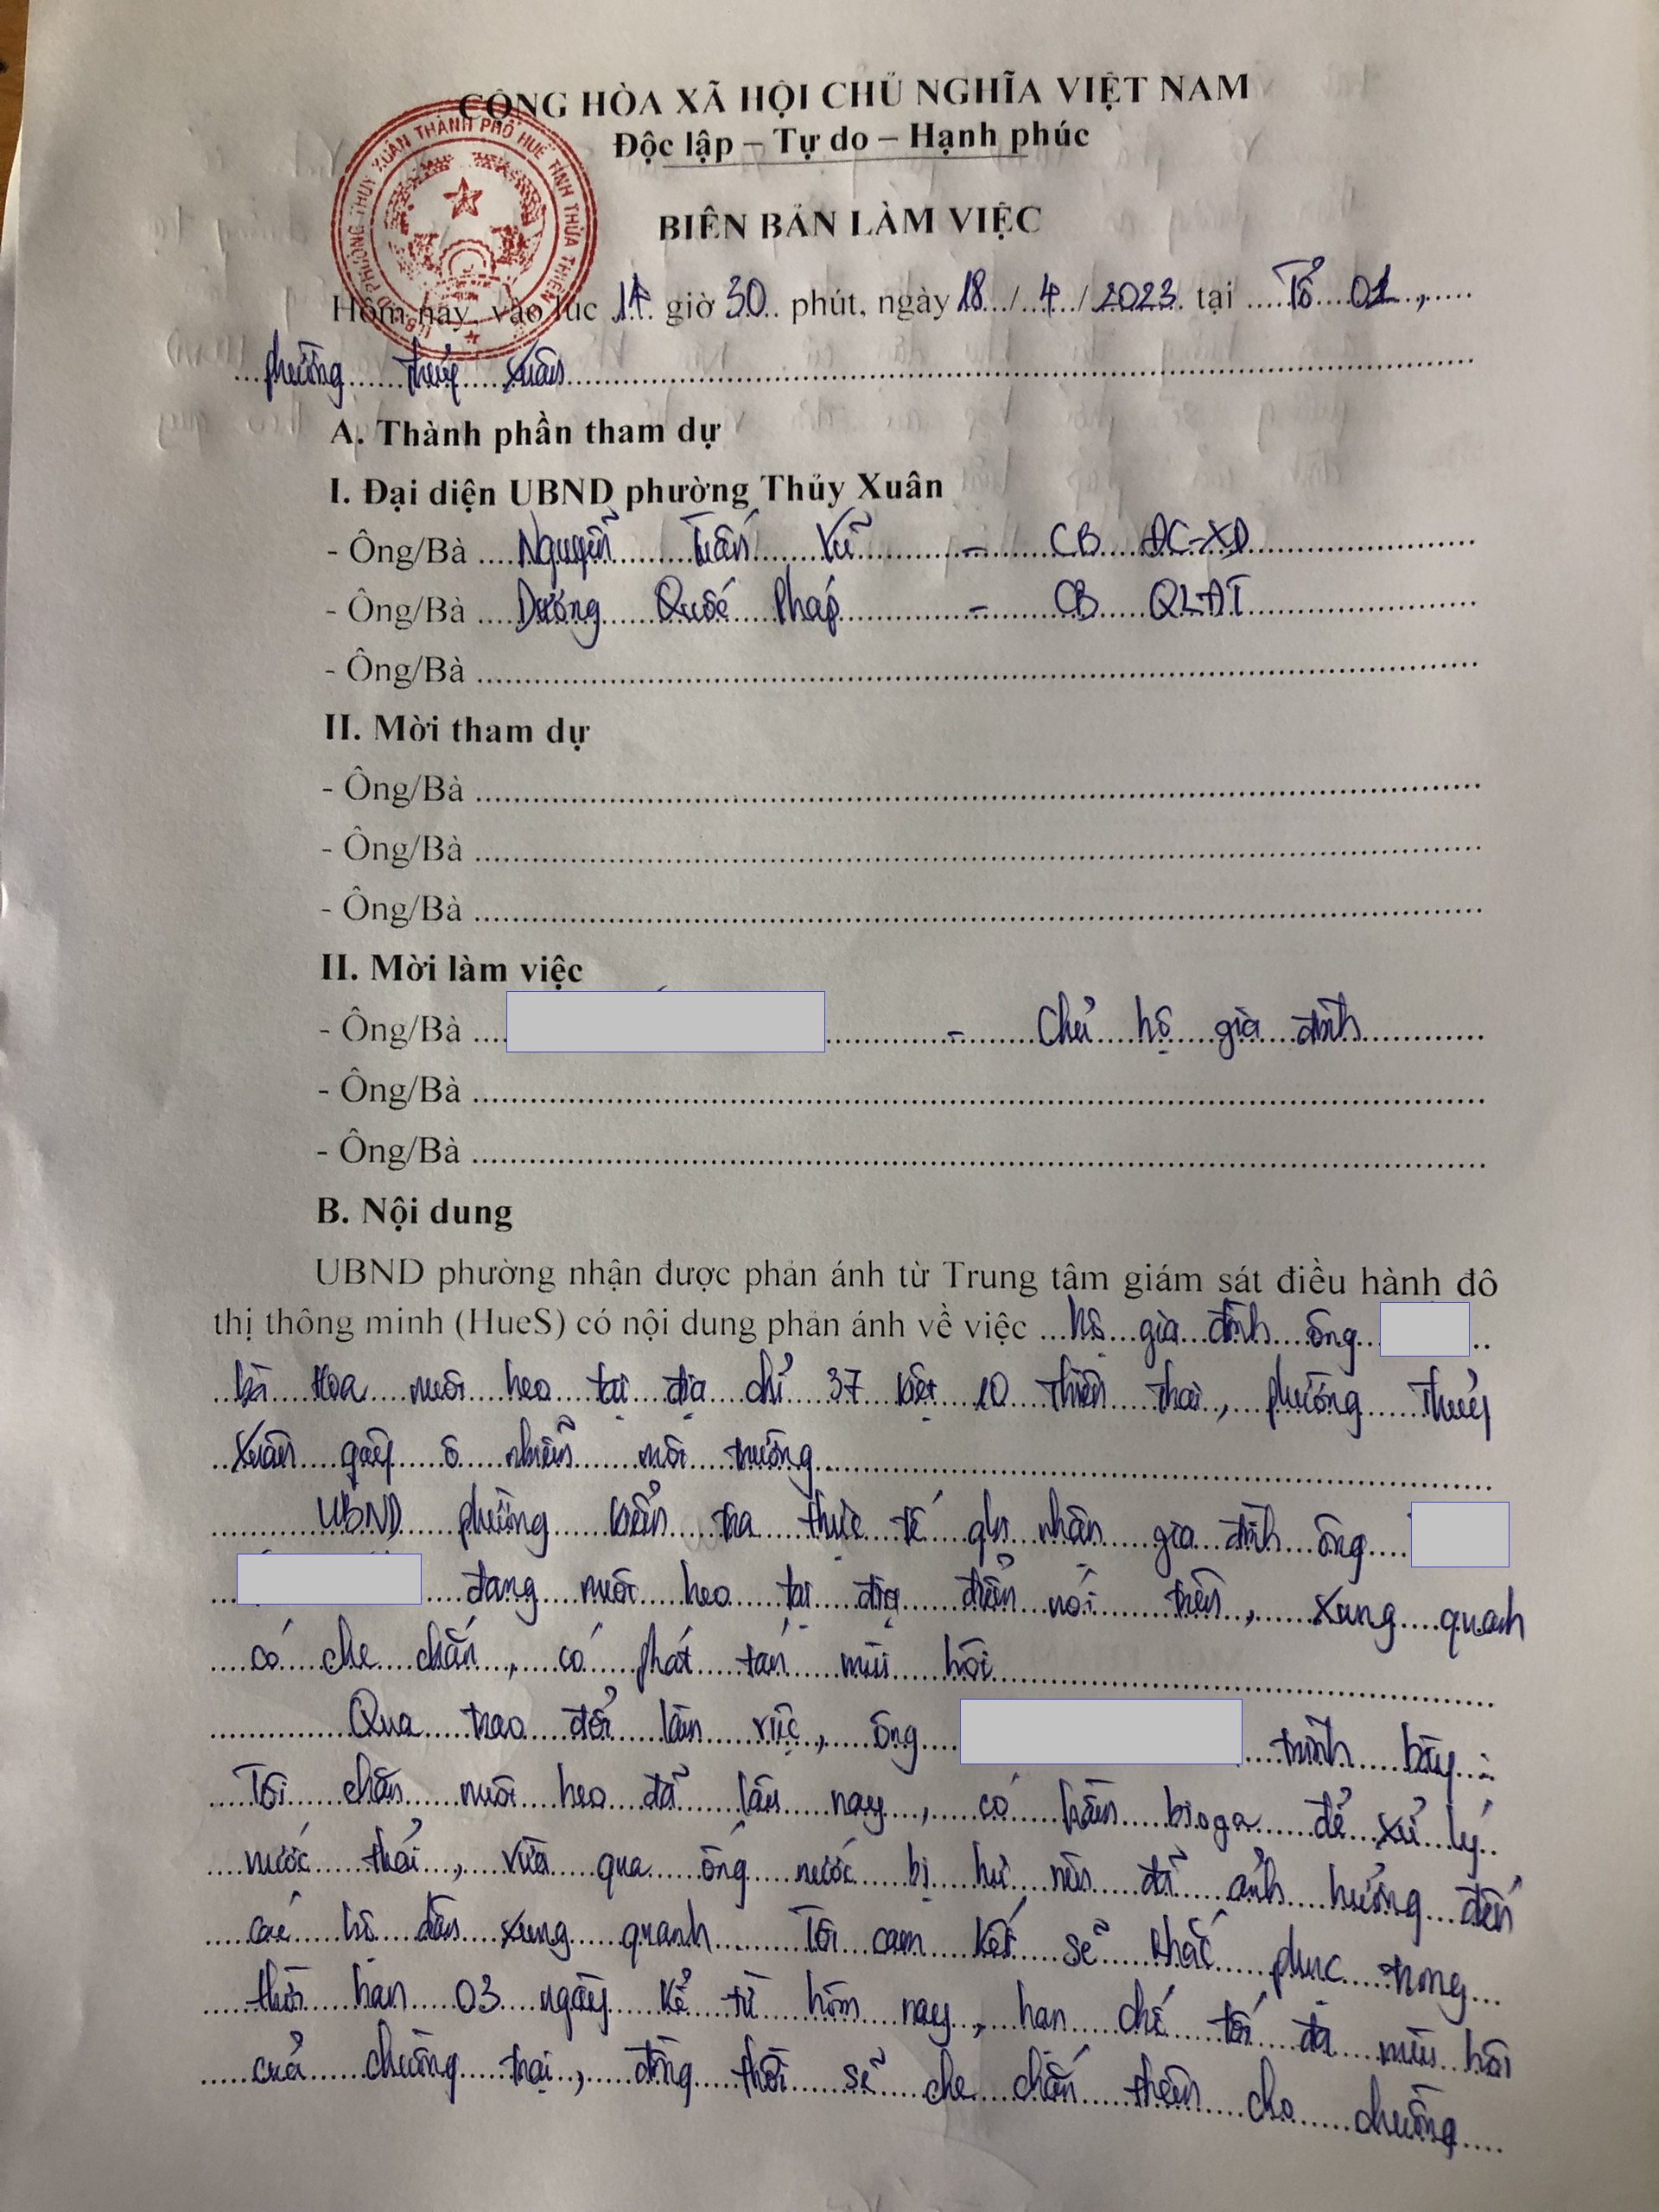 CỘNG HÒA XÃ HỘI CHỦ NGHĨA VIỆT NAM
Độc lập – Tự do – Hạnh phúc
BIÊN BẢN LÀM VIỆC
Hôm nay, vào lúc 14 giờ 30 phút, ngày 18 / 4 / 2023 tại Tổ 01,
phường Thủy Xuân
A. Thành phần tham dự
I. Đại diện UBND phường Thủy Xuân
- Ông/Bà Nguyễn Tuấn Vũ - CB ĐC-XD
- Ông/Bà Dương Quốc Pháp - CB QLĐT
- Ông/Bà
II. Mời tham dự
- Ông/Bà
- Ông/Bà
- Ông/Bà
II. Mời làm việc
- Ông/Bà - Chủ hộ gia đình
- Ông/Bà
- Ông/Bà
B. Nội dung
UBND phường nhận được phản ánh từ Trung tâm giám sát điều hành đô
thị thông minh (HueS) có nội dung phản ánh về việc hộ gia đình ông
bà Hoa nuôi heo tại địa chỉ 37 kiệt 10 Thiên Thai, phường Thủy
Xuân gây ô nhiễm môi trường
UBND phường kiểm tra thực tế ghi nhận gia đình ông
đang nuôi heo tại địa điểm nói trên, xung quanh
có che chắn, có phát tán mùi hôi
Qua trao đổi làm việc, ông trình bày:
Tôi chăn nuôi heo đã lâu nay, có hầm bioga để xử lý
nước thải, vừa qua ống nước bị hư nên đã ảnh hưởng đến
các hộ dân xung quanh. Tôi cam kết sẽ khắc phục trong
thời hạn 03 ngày kể từ hôm nay, hạn chế tối đa mùi hôi
của chuồng trại, đồng thời sẽ che chắn thêm cho chuồng